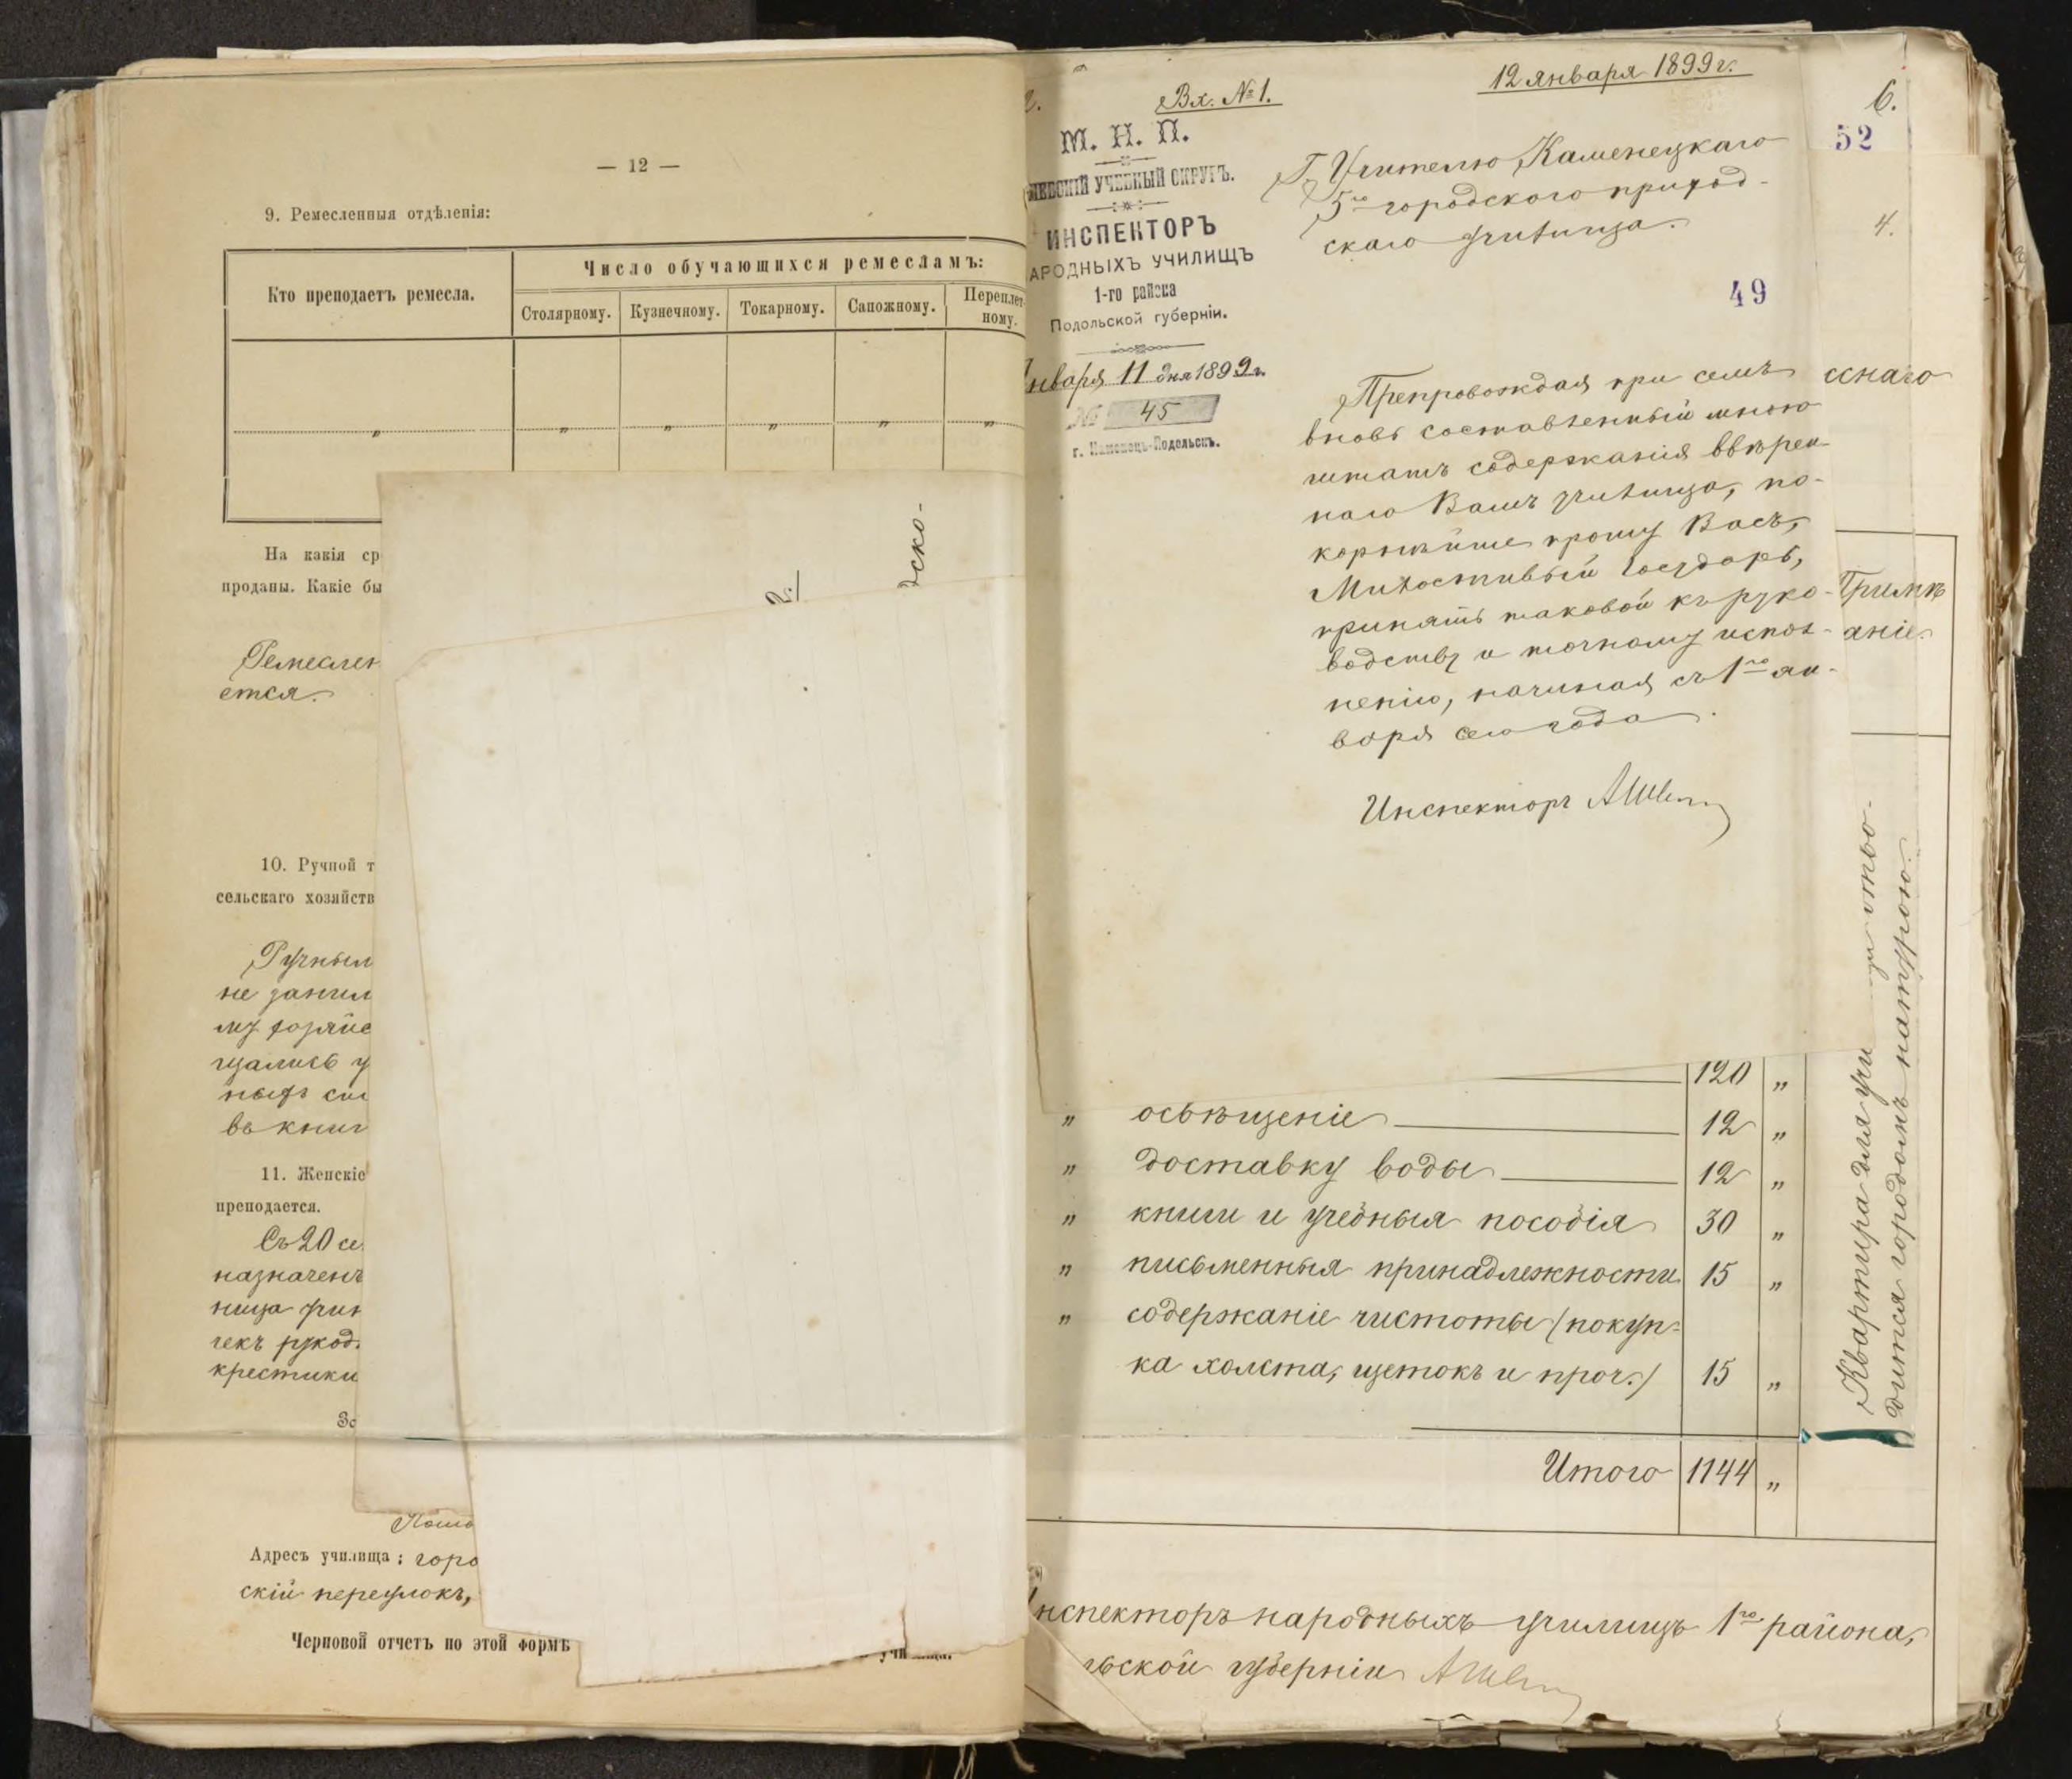 — 12 —
9. Ремесленныя отдѣленія:
Кто преподаетъ ремесла.
Число обучающихся ремесламъ:
Столярному.
Кузнечному.
Токарному.
Сапожному.
Переплет-
ному.
„ „ „ „ „
На какія ср
проданы. Какіе бы
Ремеслен
ется.
10. Ручной т
сельскаго хозяйств
Ручным
не заним
му хозяйс
щались у
ныхъ
в книг
11. Женскіе
преподается.
Съ 20 се
назначенъ
ница учи
чекъ рукод.
крестики
За
Адресъ училища: горо
скій переулокъ,
Черновой отчетъ по этой формѣ
училища.
2.
дско-
Вх. № 1.
12 января 1899 г.
М. Н. П.
ІЕВСКІЙ УЧЕБНЫЙ ОКРУГЪ.
ИНСПЕКТОРЪ
АРОДНЫХЪ УЧИЛИЩЪ
1-го района
Подольской губерніи.
Января 11 дня 1899 г.
№ 45
г. Каменецъ-Подольскъ.
Г. Учителю Каменецкаго
5го городского приход-
скаго училища.
49
Препровождая при семъ
вновь составленный мною
штатъ содержанія ввѣрен-
наго Вамъ училища, по-
корнѣйше прошу Васъ,
Милостивый Государь,
принять таковой къ руко-
водству и точному испол-
ненію, начиная съ 1го ян-
варя сего года.
Инспекторъ
6.
52
4.
сснаго
Примѣ
аніе.
120 „
„ освѣщеніе 12 „
„ доставку воды 12 „
„ книги и учебныя пособія 30 „
„ письменныя принадлежности 15 „
„ содержаніе чистоты (покуп-
ка холста, щетокъ и проч.) 15 „
Итого 1144 „
Квартира для учи отво-
дится городомъ натурою.
Инспекторъ народныхъ училищъ 1го района,
льской губерніи